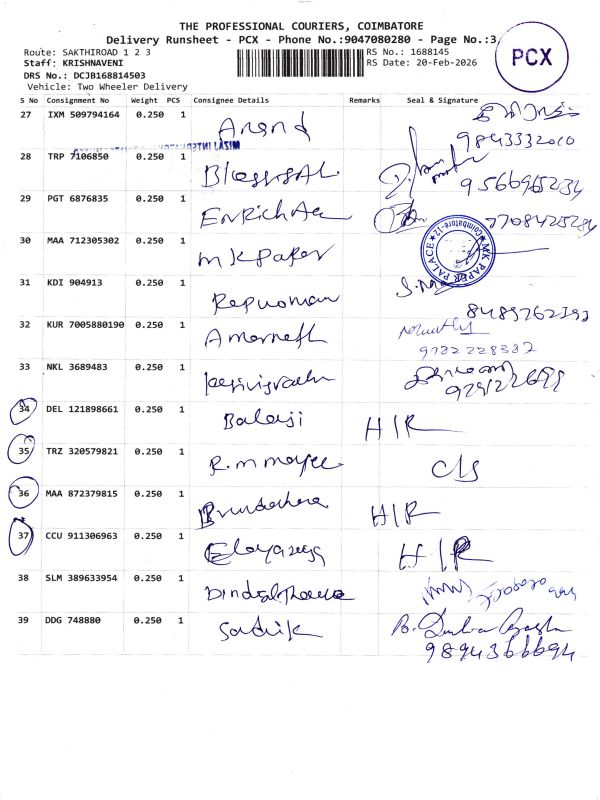 THE PROFESSIONAL COURIERS, COIMBATORE
Delivery Runsheet - PCX - Phone No.:9047080280 - Page No.:3
PCX
Route: SAKTHIROAD 1 2 3
RS No.: 1688145
Staff: KRISHNAVENI
RS Date: 20-Feb-2026
DRS No.: DCJB168814503
Vehicle: Two Wheeler Delivery
S No Consignment No Weight PCS Consignee Details Remarks Seal & Signature
27 IXM 509794164 0.250 1 Anand
9843332010
28 TRP 7106850 0.250 1 Blessgal
9566965234
29 PGT 6876835 0.250 1 Enrich
30 MAA 712305302 0.250 1 MK Paper
MK PAPER PALACE ★ Coimbatore-12 ★
31 KDI 904913 0.250 1 Repuoman
32 KUR 7005880190 0.250 1 Amarnath
33 NKL 3689483 0.250 1
34 DEL 121898661 0.250 1 Balaji H/R
35 TRZ 320579821 0.250 1 R.M c/s
36 MAA 872379815 0.250 1 H/R
37 CCU 911306963 0.250 1 H/R
38 SLM 389633954 0.250 1
39 DDG 748880 0.250 1 Sadik
9894366694